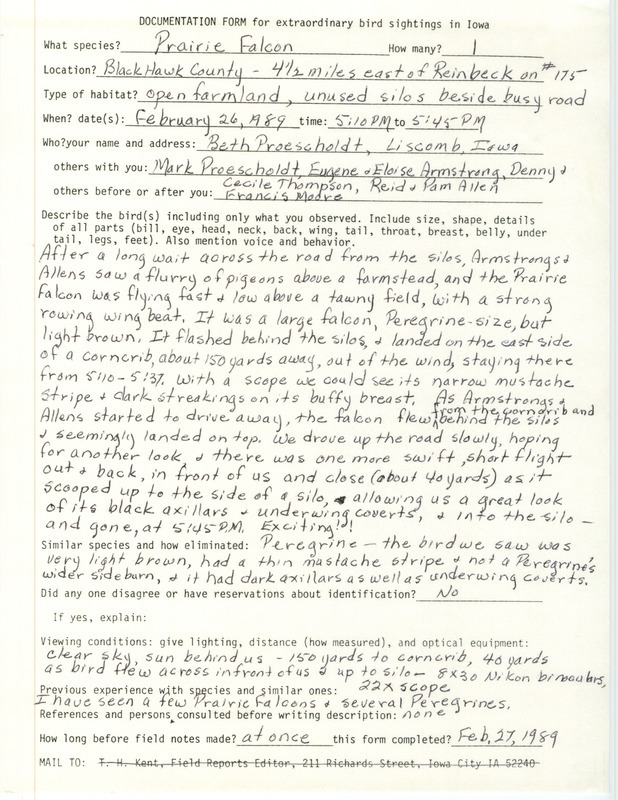 DOCUMENTATION FORM for extraordinary bird sightings in Iowa
What species? Prairie Falcon How many? 1
Location? Black Hawk County - 4 1/2 miles east of Reinbeck on #175
Type of habitat? Open farmland, unused silos beside busy road
When? date(s): February 26, 1989 time: 5:10 PM to 5:45 PM
Who?your name and address: Beth Proescholdt, Liscomb, Iowa
others with you: Mark Proescholdt, Eugene & Eloise Armstrong, Denny &
Cecile Thompson, Reid & Pam Allen
others before or after you: Francis Moore
Describe the bird(s) including only what you observed. Include size, shape, details
of all parts (bill, eye, head, neck, back, wing, tail, throat, breast, belly, under
tail, legs, feet). Also mention voice and behavior.
After a long wait across the road from the silos, Armstrongs &
Allens saw a flurry of pigeons above a farmstead, and the Prairie
Falcon was flying fast & low above a tawny field, with a strong
rowing wing beat. It was a large falcon, Peregrine-size, but
light brown. It flashed behind the silos, & landed on the east side
of a corncrib, about 150 yards away, out of the wind, staying there
from 5:10-5:37. With a scope we could see its narrow mustache
stripe & dark streakings on its buffy breast. As Armstrongs &
Allens started to drive away, the falcon flew from the corncrib and behind the silos
& seemingly landed on top. We drove up the road slowly, hoping
for another look & there was one more swift, short flight
out & back, in front of us and close (about 40 yards) as it
scooped up to the side of a silo, allowing us a great look
of its black axillars & underwing coverts, & into the silo -
and gone, at 5:45 P.M. Exciting!!
Similar species and how eliminated: Peregrine - the bird we saw was
very light brown, had a thin mustache stripe & not a Peregrine's
wider sideburn, & it had dark axillars as well as underwing coverts.
Did any one disagree or have reservations about identification? No
If yes, explain:
Viewing conditions: give lighting, distance (how measured), and optical equipment:
clear sky, sun behind us - 150 yards to corncrib, 40 yards
as bird flew across in front of us & up to silo - 8x30 Nikon binoculars,
22x scope
Previous experience with species and similar ones:
I have seen a few Prairie Falcons & several Peregrines.
References and persons consulted before writing description: none
How long before field notes made? at once this form completed? Feb, 27, 1989
MAIL TO: T. H. Kent, Field Reports Editor, 211 Richards Street, Iowa City IA 52240